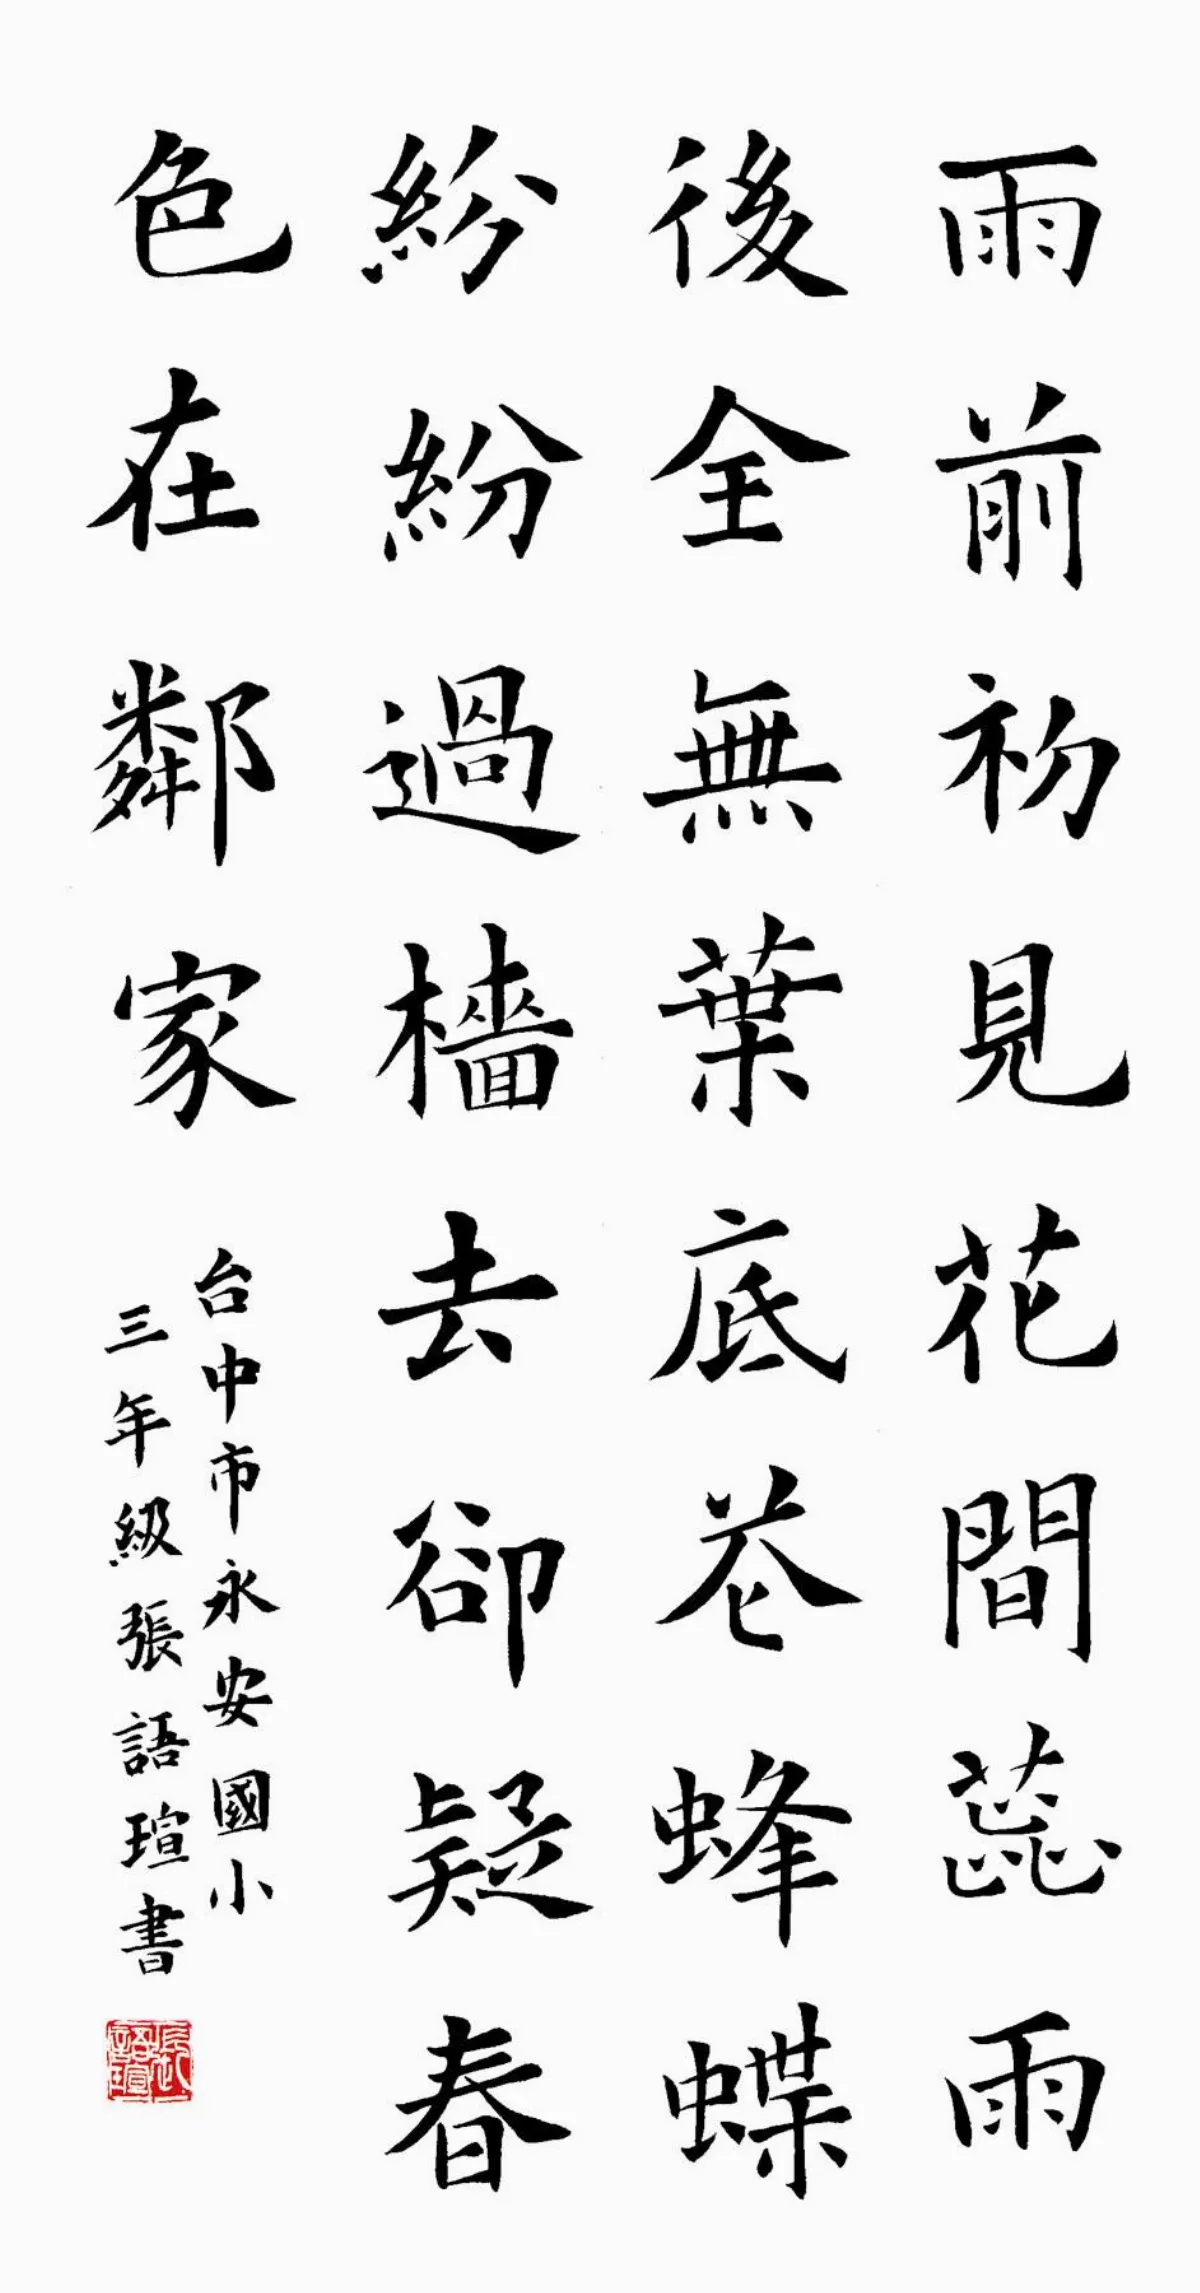 雨前初見花間蕊雨
後全無葉底花蜂蝶
紛紛過檣去卻疑春
色在鄰家
台中市永安國小
三年級張語瑄書
張語瑄